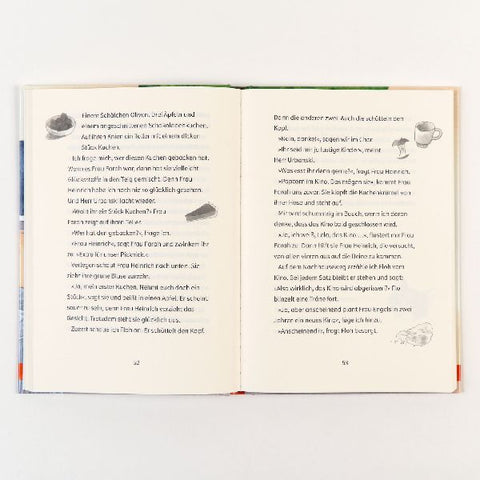 Einem Schälchen Oliven. Drei Äpfeln und
einem angeschnittenen Schokoladenkuchen.
Auf ihren Knien ein Teller mit einem dicken
Stück Kuchen.
Ich frage mich, wer diesen Kuchen gebacken hat.
Wenn es Frau Farah war, dann hat sie vielleicht
Glücksstoffe in den Teig gemischt. Denn Frau
Heinrich habe ich noch nie so glücklich gesehen.
Und Herr Urbanski lacht wieder.
»Wollt ihr ein Stück Kuchen?« Frau
Farah zeigt auf ihren Teller.
»Wer hat den gebacken?«, frage ich.
»Frau Heinrich«, sagt Frau Farah und zwinkert ihr
zu. »Extra für unser Picknick.«
Verlegen schaut Frau Heinrich nach unten. Sie
zieht ihre grüne Bluse zurecht.
»Ja, mein erster Kuchen. Nehmt euch doch ein
Stück«, sagt sie und beißt in einen Apfel. Er scheint
sauer zu sein, denn Frau Heinrich verzieht das
Gesicht. Trotzdem sieht sie glücklich aus.
Zuerst schaue ich Flo an. Er schüttelt den Kopf.
52
Dann die anderen zwei. Auch die schütteln den
Kopf.
»Nein, danke!«, sagen wir im Chor.
»Ihr seid mir ja lustige Kinder«, meint
Herr Urbanski.
»Was esst ihr denn gerne?«, fragt Frau Heinrich.
»Popcorn im Kino. Das mögen sie«, kommt Frau
Farah uns zuvor. Sie klopft die Kuchenkrümel von
ihrer Hose und steht auf.
Mir wird schummrig im Bauch, wenn ich daran
denke, dass das Kino bald geschlossen wird.
»Ja, ich weiß, Leila, das Kino …«, flüstert mir Frau
Farah zu. Dann hilft sie Frau Heinrich, die versucht,
von allen vieren aus auf die Beine zu kommen.
Auf dem Nachhauseweg erzähle ich Flo vom
Kino. Bei jedem Satz bleibt er stehen und sagt:
»Also wirklich, das Kino wird abgerissen?« Flo
blinzelt eine Träne fort.
»Ja, aber anscheinend plant Frau Engels in zwei
Jahren ein neues Kino«, füge ich hinzu.
»Anscheinend?«, fragt Flo besorgt.
53